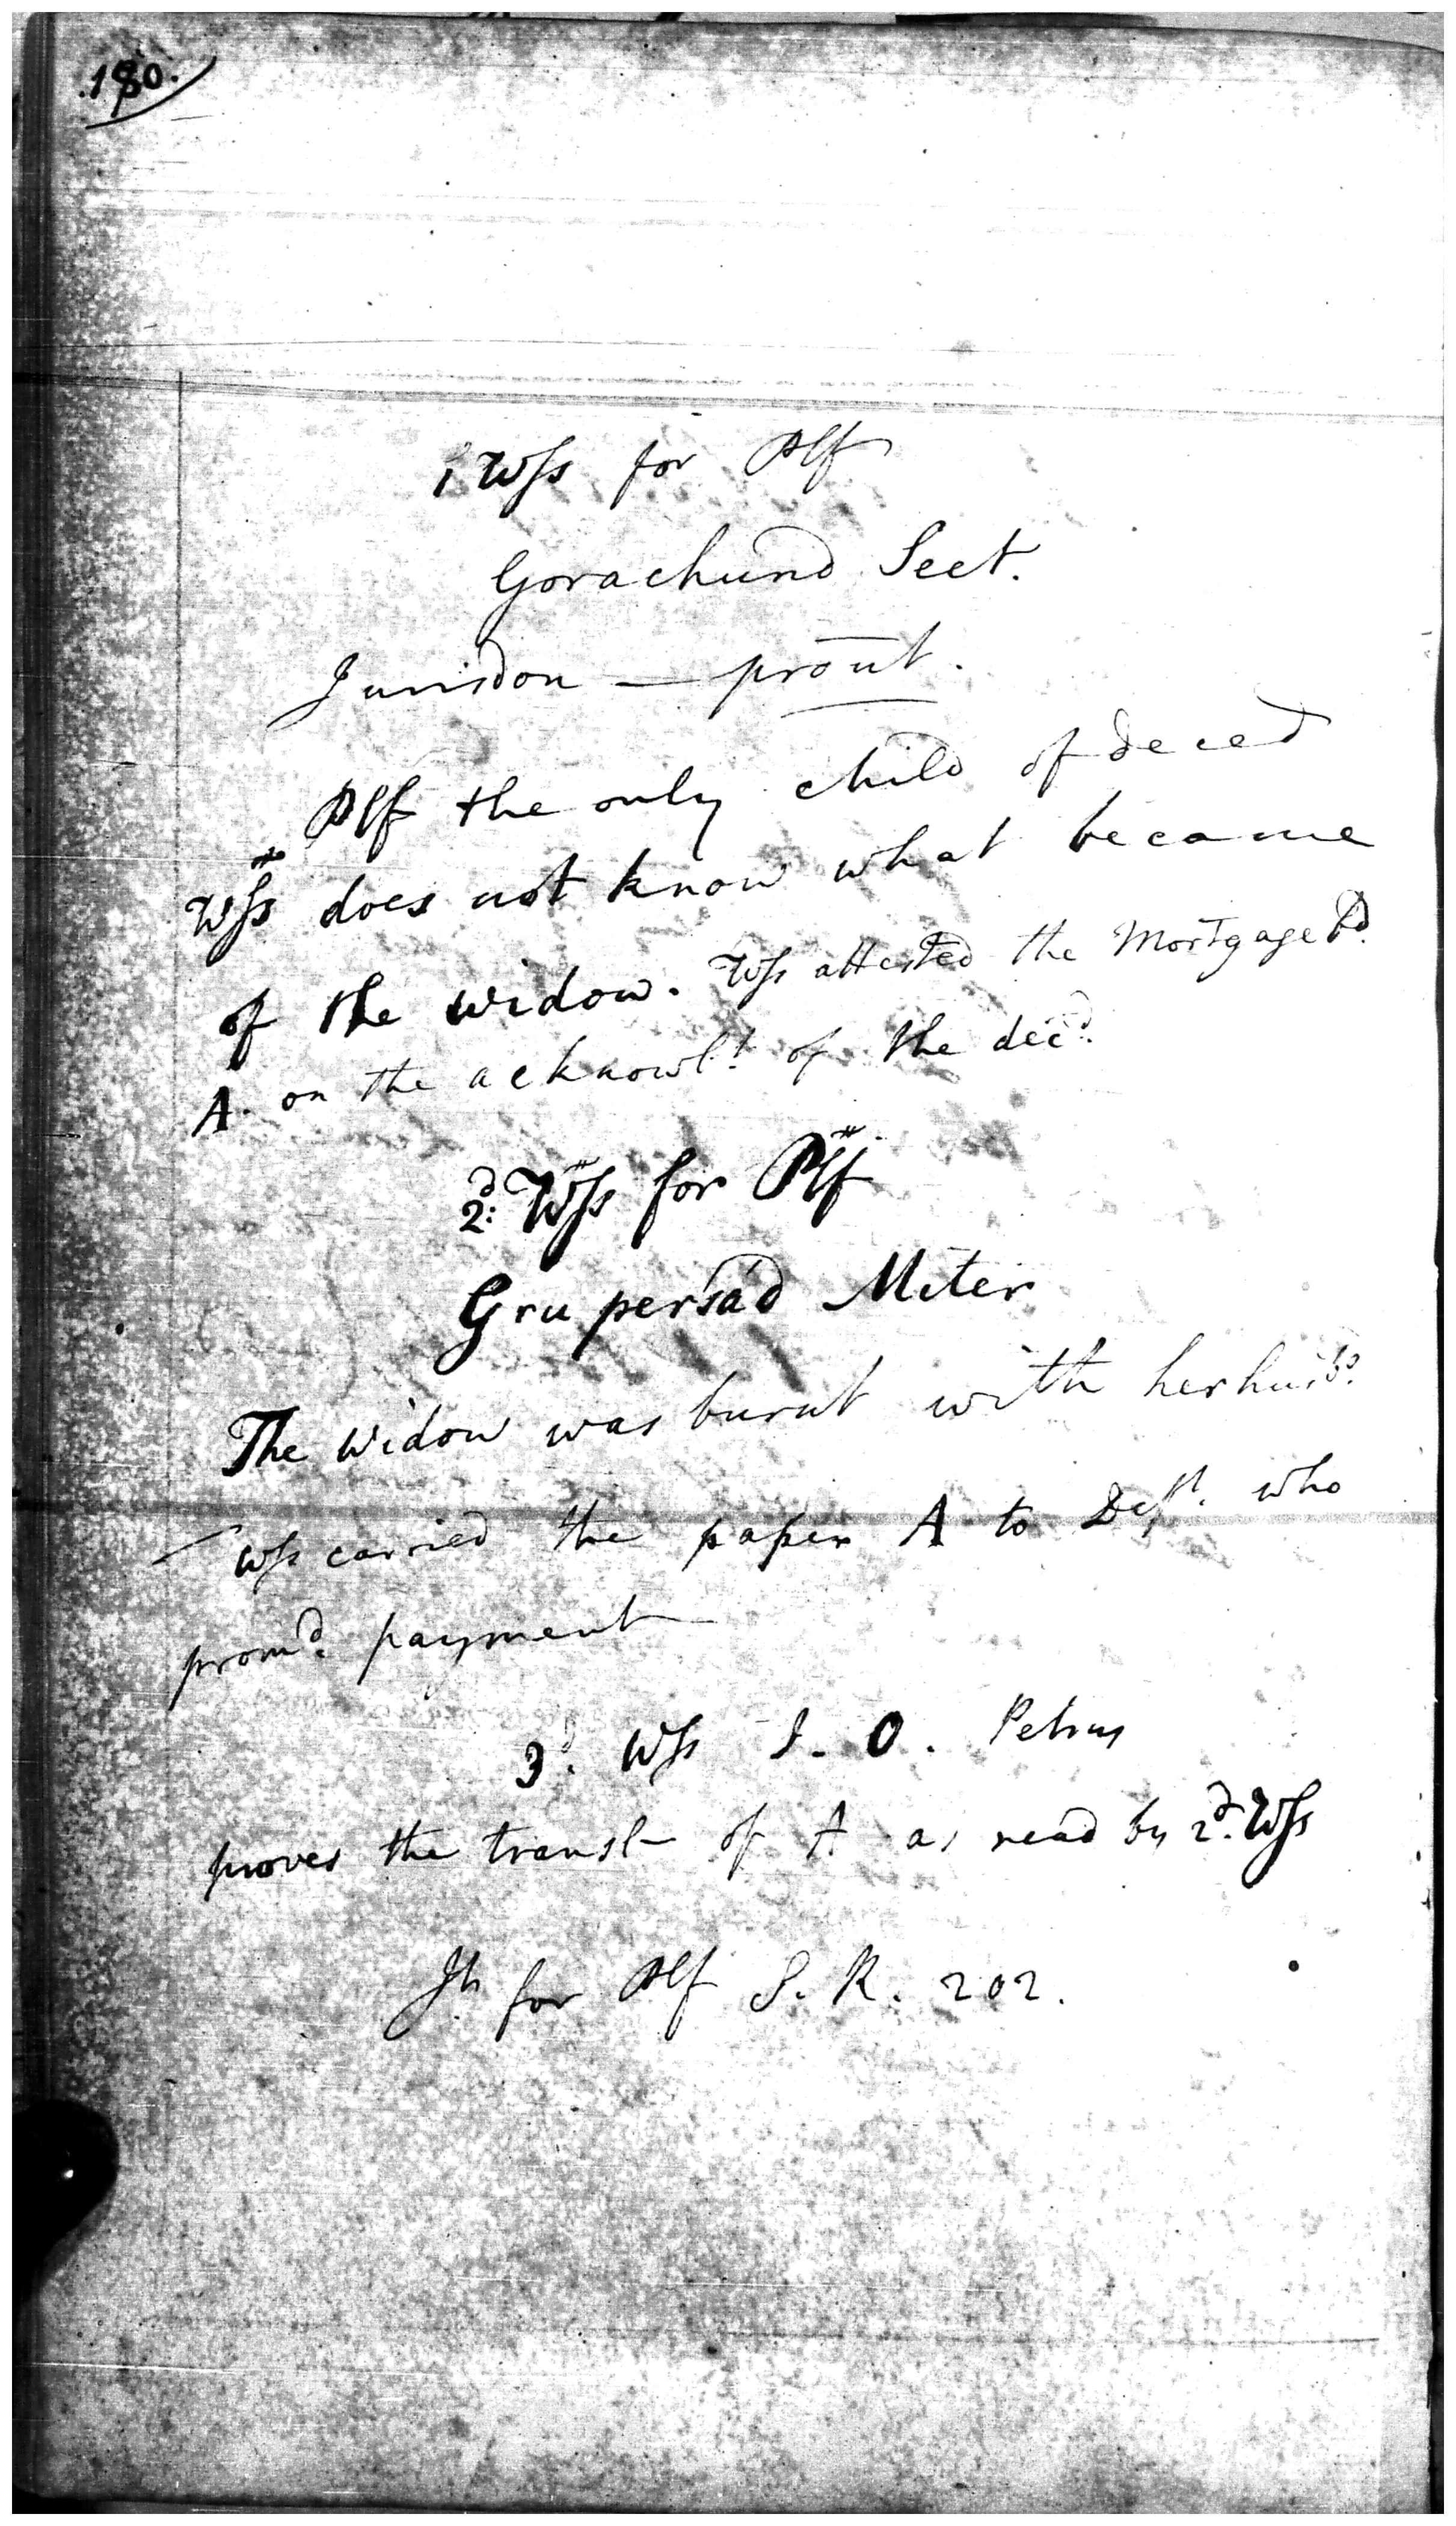 180.
1 Wss for Plf
Gorachund Seet.
Jurisdon — prout.
Plf the only child of deced
Wss does not know what became
of the widow. Wss attested the Mortgage Bd.
A. on the acknowlt. of the decd.
2d. Wss for Plf
Grupersad Miter
The widow was burnt with her husbd.
Wss carried the paper A to Deft. who
promd. payment
3d. Wss J. O. Petrus
proves the transl of A as read by 2d. Wss
Jt. for Plf S. R. 202.